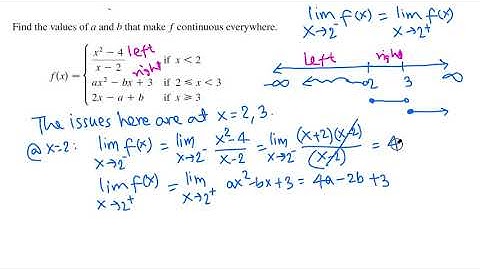 Find the values of a and b that make f continuous everywhere.
lim f(x) = lim f(x)
x→2⁻ x→2⁺
f(x) = { x² − 4 / x − 2 if x < 2
ax² − bx + 3 if 2 ≤ x < 3
2x − a + b if x ≥ 3
left
right
left right
-∞ 2 3 ∞
The issues here are at x = 2, 3.
@ x=2: lim f(x) = lim x²-4 / x-2 = lim (x+2)(x-2) / (x-2) = 4
x→2⁻ x→2⁻ x→2⁻
lim f(x) = lim ax²-bx+3 = 4a-2b+3
x→2⁺ x→2⁺